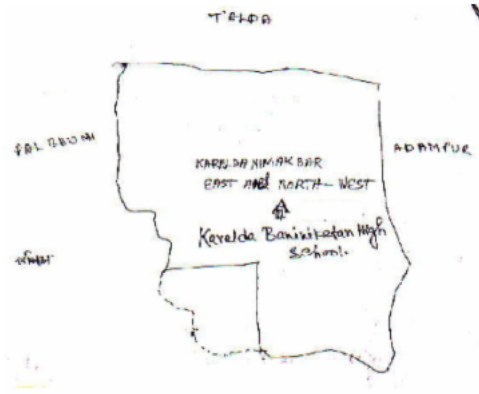 TALDA
ADAMPUR
KARALDA NIMAKBAR
EAST AND NORTH-WEST
Karalda Baniniketan High
School.